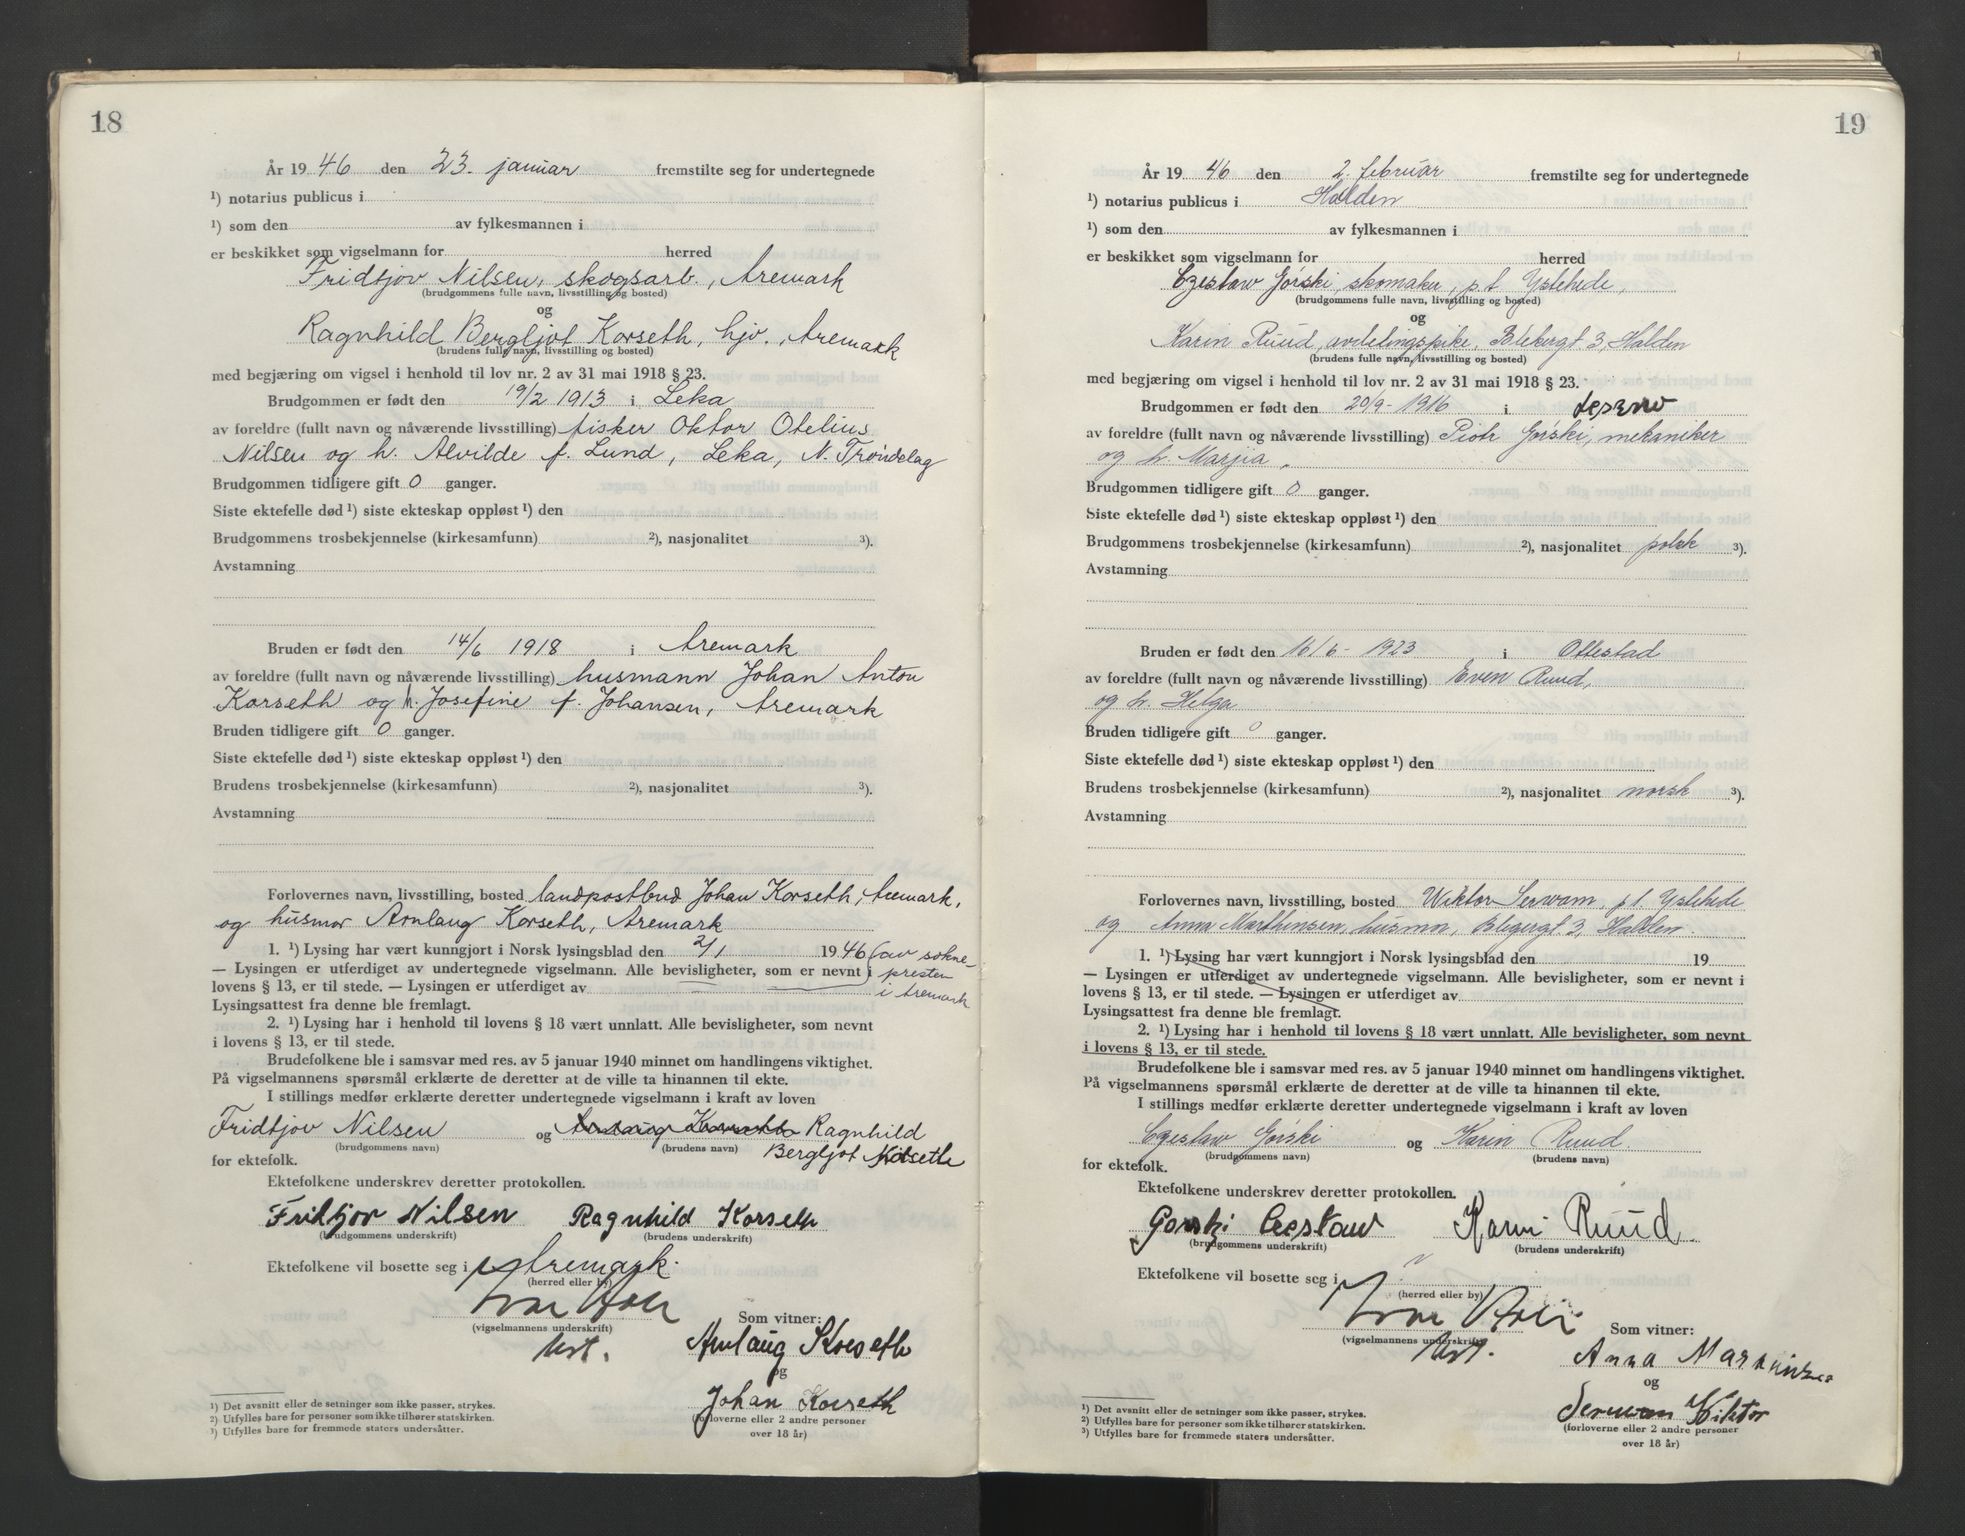 18
År 1946 den 23. januar fremstilte seg for undertegnede
¹) notarius publicus i
¹) som den av fylkesmannen i
er beskikket som vigselmann for herred
Fridtjov Nilsen, skogsarb., Aremark
(brudgommens fulle navn, livsstilling og bosted)
og
Ragnhild Bergljot Korseth, hjv., Aremark
(brudens fulle navn, livsstilling og bosted)
med begjæring om vigsel i henhold til lov nr. 2 av 31 mai 1918 § 23.
Brudgommen er født den 19/2 1913 i Leka
av foreldre (fullt navn og nåværende livsstilling) fisker Oktor Otelius
Nilsen og h. Alvilde f. Lund, Leka, N. Trøndelag
Brudgommen tidligere gift 0 ganger.
Siste ektefelle død ¹) siste ekteskap oppløst ¹) den
Brudgommens trosbekjennelse (kirkesamfunn) ²), nasjonalitet ³).
Avstamning
Bruden er født den 14/6 1918 i Aremark
av foreldre (fullt navn og nåværende livsstilling) husmann Johan Anton
Korseth og h. Josefine f. Johansen, Aremark
Bruden tidligere gift 0 ganger.
Siste ektefelle død ¹) siste ekteskap oppløst ¹) den
Brudens trosbekjennelse (kirkesamfunn) ²), nasjonalitet ³).
Avstamning
Forlovernes navn, livsstilling, bosted landpostbud Johan Korseth, Aremark,
og husmor Arnlaug Korseth, Aremark
1. ¹) Lysing har vært kunngjort i Norsk lysingsblad den 2/1 1946 (av sokne-
— Lysingen er utferdiget av undertegnede vigselmann. Alle bevisligheter, som er nevnt i presten
lovens § 13, er til stede. — Lysingen er utferdiget av i Aremark
Lysingsattest fra denne ble fremlagt.
2. ¹) Lysing har i henhold til lovens § 18 vært unnlatt. Alle bevisligheter, som nevnt
i lovens § 13, er til stede.
Brudefolkene ble i samsvar med res. av 5 januar 1940 minnet om handlingens viktighet.
På vigselmannens spørsmål erklærte de deretter at de ville ta hinannen til ekte.
I stillings medfør erklærte deretter undertegnede vigselmann i kraft av loven
Fridtjov Nilsen og Arnlaug Korseth Ragnhild
(brudgommens navn) (brudens navn) Bergljot Korseth
for ektefolk.
Ektefolkene underskrev deretter protokollen.
Fridtjov Nilsen Ragnhild Korseth
(brudgommens underskrift) (brudens underskrift)
Ektefolkene vil bosette seg i Aremark.
(herred eller by)
(vigselmannens underskrift)
Som vitner:
Arnlaug Korseth
og
Johan Korseth
(forloverne eller 2 andre personer
over 18 år)
¹) Det avsnitt eller de setninger som ikke passer, strykes.
²) Utfylles bare for personer som ikke tilhører statskirken.
³) Utfylles bare for fremmede staters undersåtter.
19
År 1946 den 2. februar fremstilte seg for undertegnede
¹) notarius publicus i Halden
¹) som den av fylkesmannen i
er beskikket som vigselmann for herred
Czestaw Górski, skomaker, p.t. Ystehede,
(brudgommens fulle navn, livsstilling og bosted)
og
Karin Ruud, avdelingspike, Blekergt 3, Halden
(brudens fulle navn, livsstilling og bosted)
med begjæring om vigsel i henhold til lov nr. 2 av 31 mai 1918 § 23.
Brudgommen er født den 20/9 - 1916 i
av foreldre (fullt navn og nåværende livsstilling) Piotr Górski, mekaniker
og h. Marjia „
Brudgommen tidligere gift 0 ganger.
Siste ektefelle død ¹) siste ekteskap oppløst ¹) den
Brudgommens trosbekjennelse (kirkesamfunn) ²), nasjonalitet polsk ³).
Avstamning
Bruden er født den 16/6 - 1923 i Ottestad
av foreldre (fullt navn og nåværende livsstilling) Even Ruud,
og h. Helga
Bruden tidligere gift 0 ganger.
Siste ektefelle død ¹) siste ekteskap oppløst ¹) den
Brudens trosbekjennelse (kirkesamfunn) ²), nasjonalitet norsk ³).
Avstamning
Forlovernes navn, livsstilling, bosted Wiktor Serwam, p.t. Ystehede
og Anna Marthinsen, husmor, Blegergt 3, Halden.
1. ¹) Lysing har vært kunngjort i Norsk lysingsblad den 19
— Lysingen er utferdiget av undertegnede vigselmann. Alle bevisligheter, som er nevnt i
lovens § 13, er til stede. — Lysingen er utferdiget av
Lysingsattest fra denne ble fremlagt.
2. ¹) Lysing har i henhold til lovens § 18 vært unnlatt. Alle bevisligheter, som nevnt
i lovens § 13, er til stede.
Brudefolkene ble i samsvar med res. av 5 januar 1940 minnet om handlingens viktighet.
På vigselmannens spørsmål erklærte de deretter at de ville ta hinannen til ekte.
I stillings medfør erklærte deretter undertegnede vigselmann i kraft av loven
Czestaw Górski og Karin Ruud.
(brudgommens navn) (brudens navn)
for ektefolk.
Ektefolkene underskrev deretter protokollen.
Gorski Czestaw Karin Ruud.
(brudgommens underskrift) (brudens underskrift)
Ektefolkene vil bosette seg i ?
(herred eller by)
(vigselmannens underskrift)
Som vitner:
Anna
og
Serwam Wiktor
(forloverne eller 2 andre personer
over 18 år)
¹) Det avsnitt eller de setninger som ikke passer, strykes.
²) Utfylles bare for personer som ikke tilhører statskirken.
³) Utfylles bare for fremmede staters undersåtter.